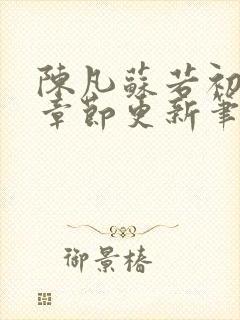 陳凡蘇若初
章節更新筆
御景椿